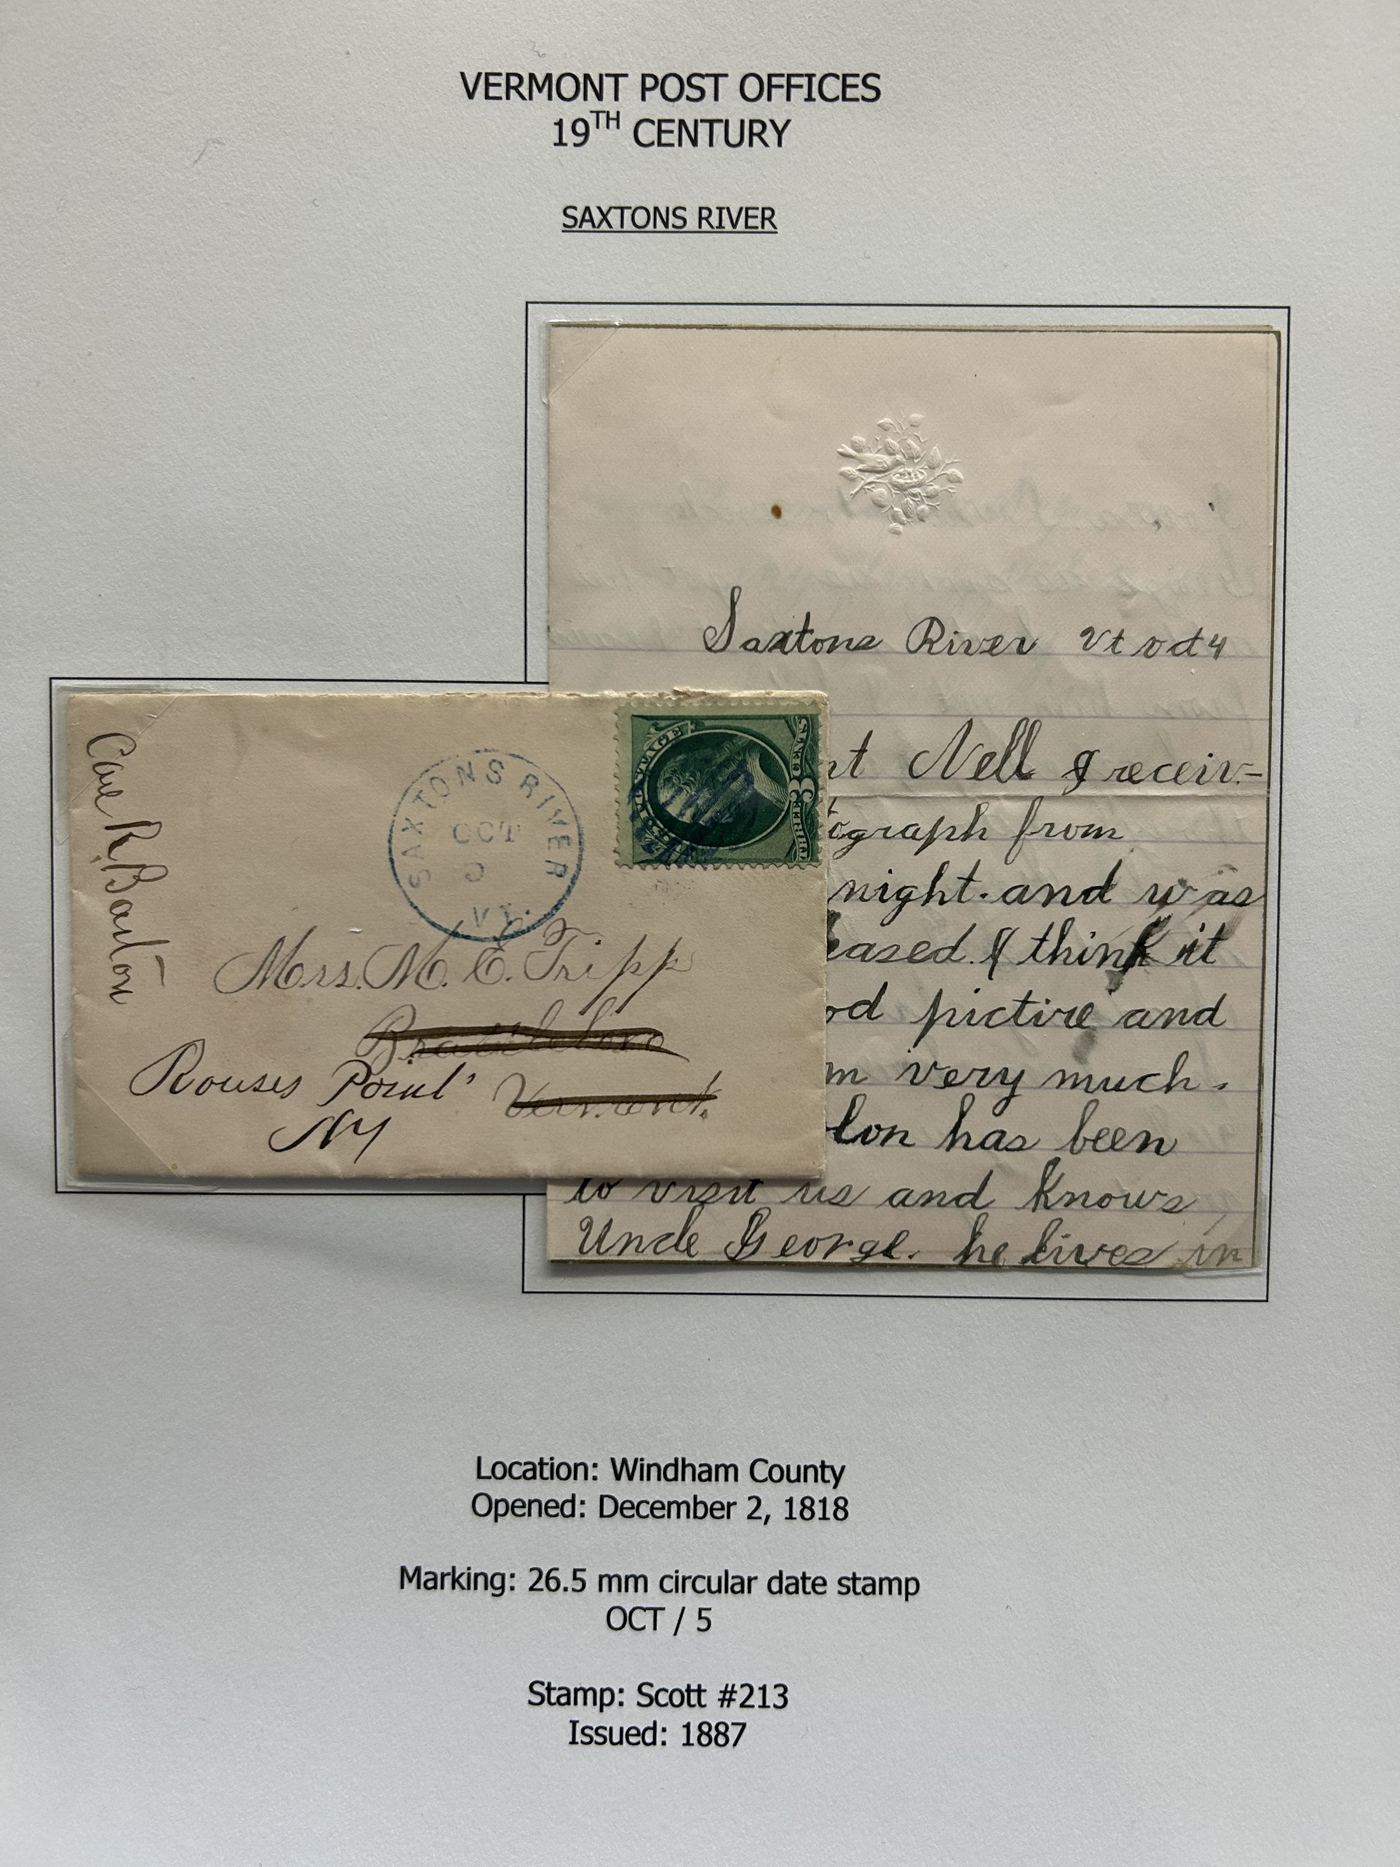 VERMONT POST OFFICES
19TH CENTURY
SAXTONS RIVER
Saxtons River Vt Oct 4
nt Nell I receiv-
tograph from
night. and was
eased. I think it
od pictire and
m very much.
lon has been
to visit us and Knows
Uncle George. he lives in
SAXTONS RIVER
OCT
VT.
U.S. POSTAGE
THREE
Care R. Barton
Mrs. M. E. Tripp
Brattleboro
Vermont.
Rouses Point
NY
Location: Windham County
Opened: December 2, 1818
Marking: 26.5 mm circular date stamp
OCT / 5
Stamp: Scott #213
Issued: 1887